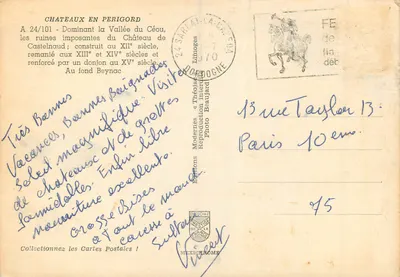 CHATEAUX EN PÉRIGORD
A 24/101 - Dominant la Vallée du Céou,
les ruines imposantes du Château de
Castelnaud ; construit au XIIᵉ siècle,
remanié aux XIIIᵉ et XIVᵉ siècles et
renforcé par un donjon au XVᵉ siècle.
Au fond Beynac
Très Bonnes
Vacances, Bonnes Baignades
Soleil magnifique. Visites
de chateaux et de grottes
formidables. Enfin libre
nourriture excellente.
Grosses Bises
à Tout le monde
caresse à
Sultan
Vincent
Collectionnez les Cartes Postales !
Editions Modernes « Théojac » Limoges
Reproduction Interdite
Photo Beaujard
24 SARLAT-LA-CANEDA
1970
DORDOGNE
FE
de
déb
13 rue Taylor 13.
Paris 10 eme.
75